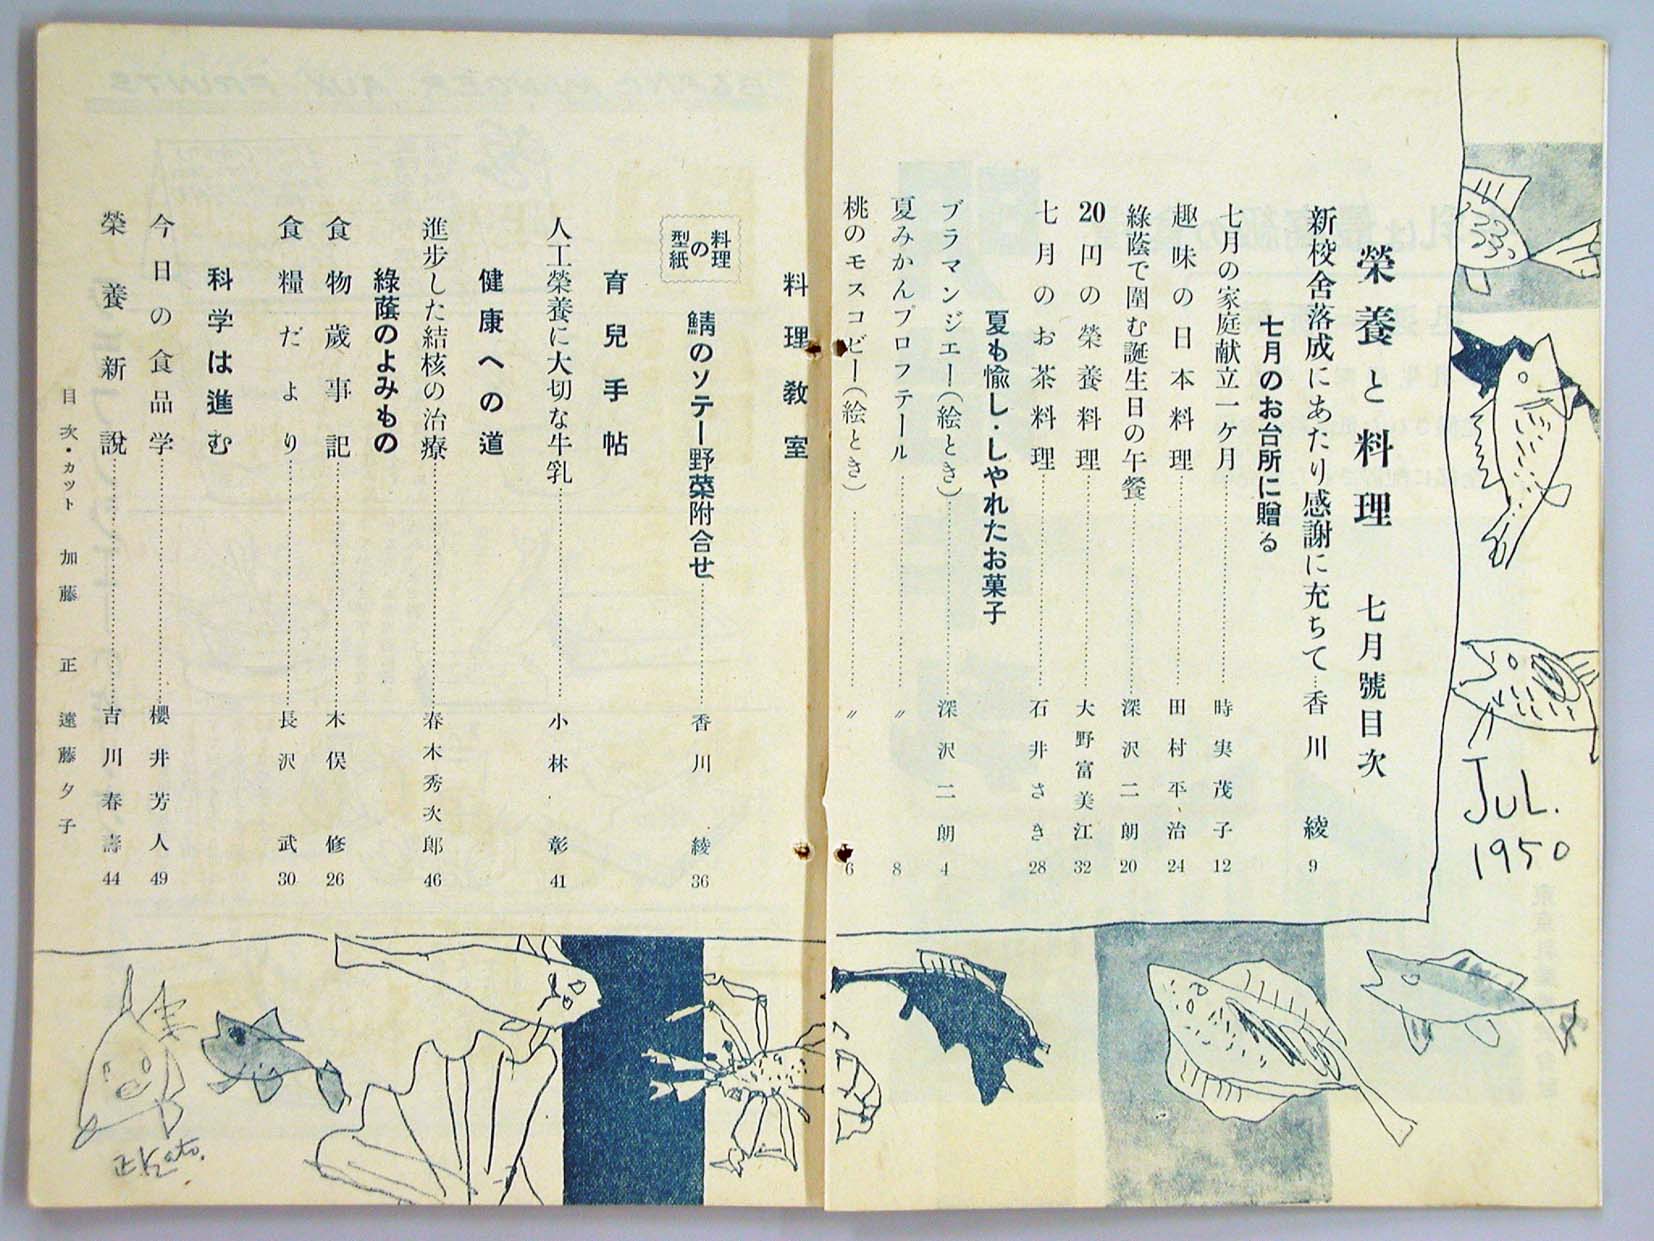 榮養と料理 七月號目次
新校舍落成にあたり感謝に充ちて…香川 綾 9
七月のお台所に贈る
七月の家庭献立一ケ月…時実茂子 12
趣味の日本料理…田村平治 24
綠蔭で囲む誕生日の午餐…深沢二朗 20
20円の榮養料理…大野富美江 32
七月のお茶料理…石井さき 28
夏も愉し・しやれたお菓子
ブラマンジエー(絵とき)…深沢二朗 4
夏みかんプロフテール…〃 8
桃のモスコビー(絵とき)…〃 6
料理教室
料理の型紙
鯖のソテー野菜附合せ…香川 綾 36
育兒手帖
人工榮養に大切な牛乳…小林 彰 41
健康への道
進歩した結核の治療…春木秀次郎 46
綠蔭のよみもの
食物歲事記…木俣 修 26
食糧だより…長沢 武 30
科学は進む
今日の食品学…櫻井芳人 49
榮養新説…吉川春壽 44
目次・カット 加藤 正 遠藤夕子
JUL.
1950
正Kato.